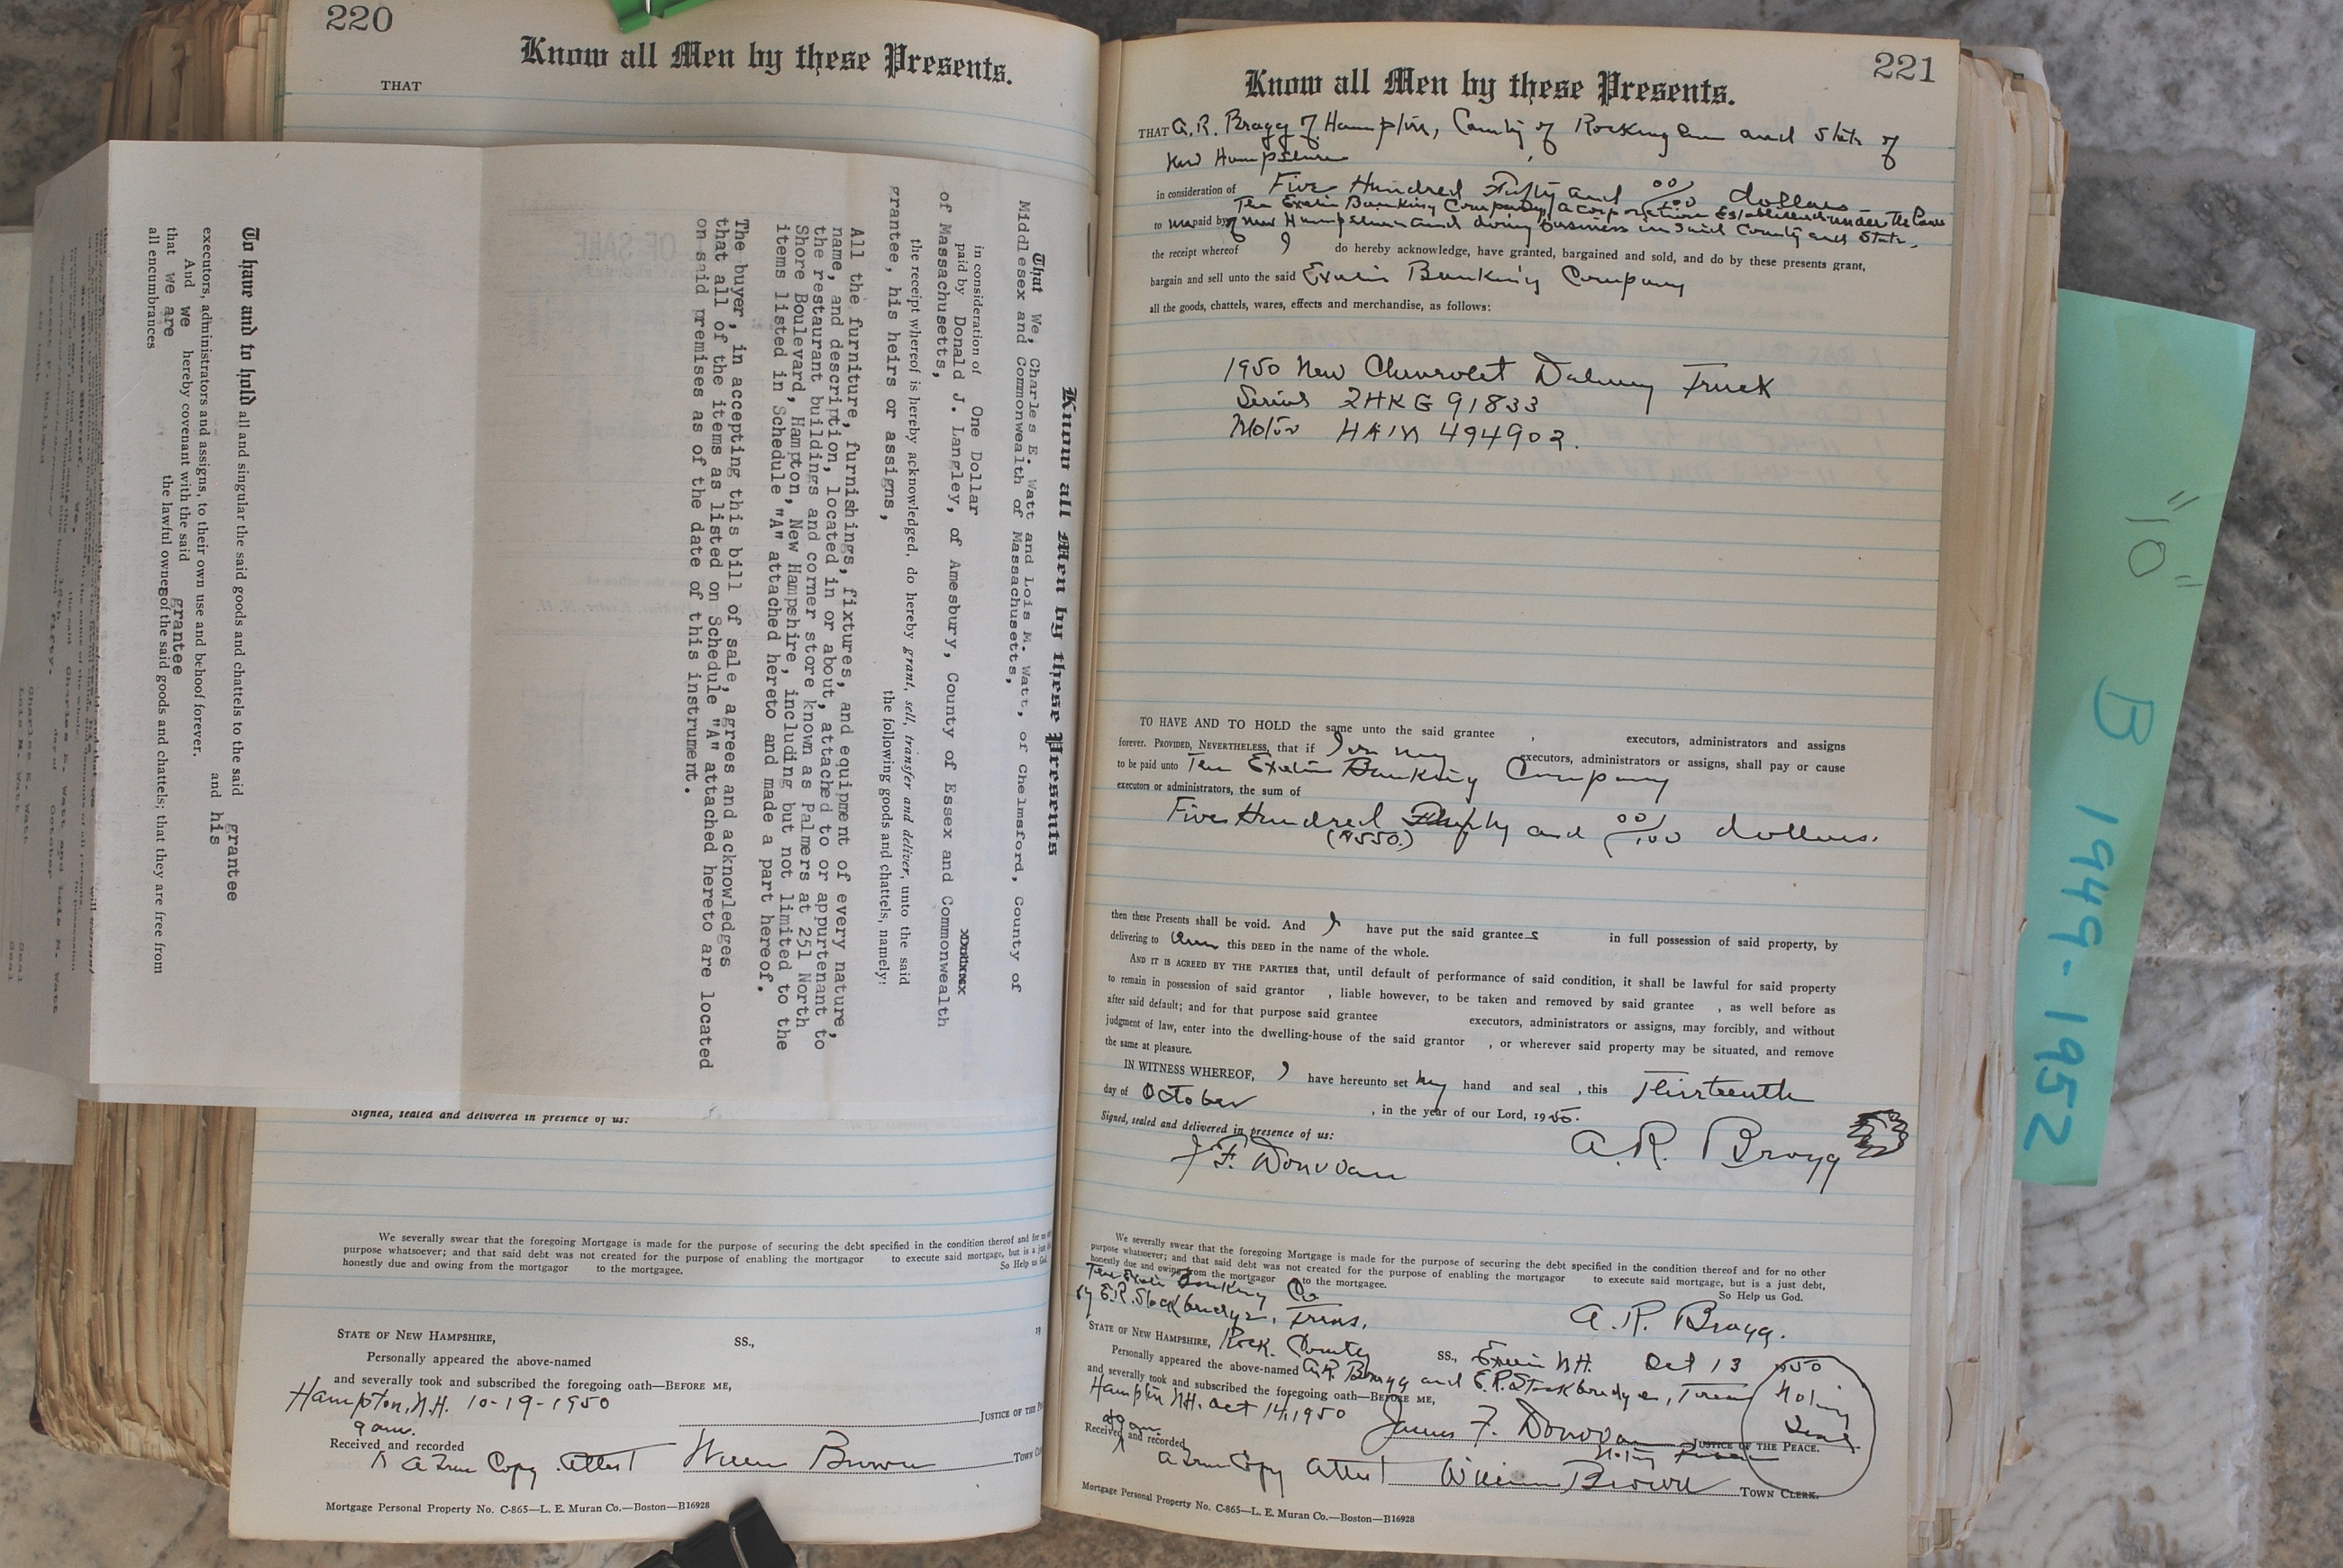 220
Know all Men by these Presents.
THAT
Know all Men by these Presents
That We, Charles E. Watt and Lois M. Watt, of Chelmsford, County of
Middlesex and Commonwealth of Massachusetts,
in consideration of One Dollar
paid by Donald J. Langley, of Amesbury, County of Essex and Commonwealth
of Massachusetts,
the receipt whereof is hereby acknowledged, do hereby grant, sell, transfer and deliver, unto the said
grantee, his heirs or assigns, the following goods and chattels, namely:
All the furniture, furnishings, fixtures, and equipment of every nature,
name, and description, located in or about, attached to or appurtenant to
the restaurant buildings and corner store known as Palmers at 251 North
Shore Boulevard, Hampton, New Hampshire, including but not limited to the
items listed in Schedule "A" attached hereto and made a part hereof.
The buyer, in accepting this bill of sale, agrees and acknowledges
that all of the items as listed on Schedule "A" attached hereto are located
on said premises as of the date of this instrument.
To have and to hold all and singular the said goods and chattels to the said grantee
and his
executors, administrators and assigns, to their own use and behoof forever.
And we hereby covenant with the said grantee
that we are the lawful owners of the said goods and chattels; that they are free from
all encumbrances
In Witness Whereof, we, the said Charles E. Watt and Lois M. Watt
day of October
fifty.
Charles E. Watt Seal
Lois M. Watt Seal
Signed, sealed and delivered in presence of us:
We severally swear that the foregoing Mortgage is made for the purpose of securing the debt specified in the condition thereof and for no
purpose whatsoever; and that said debt was not created for the purpose of enabling the mortgagor to execute said mortgage, but is a just
honestly due and owing from the mortgagor to the mortgagee. So Help us God.
STATE OF NEW HAMPSHIRE, SS., 19
Personally appeared the above-named
and severally took and subscribed the foregoing oath—BEFORE ME,
Hampton, N.H. 10-19-1950
JUSTICE OF THE
9 am.
Received and recorded
A True Copy Attest William Brown TOWN
Mortgage Personal Property No. C-865—L. E. Muran Co.—Boston—B16928
221
Know all Men by these Presents.
THAT A. R. Bragg of Hampton, County of Rockingham and State of
New Hampshire
in consideration of Five Hundred Fifty and 00/100 dollars
The Exeter Banking Company, a corporation established under the laws
to me paid by of New Hampshire and doing business in said County and State,
the receipt whereof I do hereby acknowledge, have granted, bargained and sold, and do by these presents grant,
bargain and sell unto the said Exeter Banking Company
all the goods, chattels, wares, effects and merchandise, as follows:
1950 New Chevrolet Delivery Truck
Serial 2HKG 91833
Motor HAM 494902.
TO HAVE AND TO HOLD the same unto the said grantee , executors, administrators and assigns
forever. PROVIDED, NEVERTHELESS, that if I or my executors, administrators or assigns, shall pay or cause
to be paid unto The Exeter Banking Company
executors or administrators, the sum of
Five Hundred Fifty and 00/100 dollars.
($550.)
then these Presents shall be void. And I have put the said grantees in full possession of said property, by
delivering to them this DEED in the name of the whole.
AND IT IS AGREED BY THE PARTIES that, until default of performance of said condition, it shall be lawful for said property
to remain in possession of said grantor , liable however, to be taken and removed by said grantee , as well before as
after said default; and for that purpose said grantee executors, administrators or assigns, may forcibly, and without
judgment of law, enter into the dwelling-house of the said grantor , or wherever said property may be situated, and remove
the same at pleasure.
IN WITNESS WHEREOF, I have hereunto set my hand and seal , this Thirteenth
day of October , in the year of our Lord, 1950.
Signed, sealed and delivered in presence of us:
J F. Donovan A. R. Bragg
We severally swear that the foregoing Mortgage is made for the purpose of securing the debt specified in the condition thereof and for no other
purpose whatsoever; and that said debt was not created for the purpose of enabling the mortgagor to execute said mortgage, but is a just debt,
honestly due and owing from the mortgagor to the mortgagee. So Help us God.
The Exeter Banking Co
by E.R. Stockbridge, Treas. A. R. Bragg.
STATE OF NEW HAMPSHIRE, Rock. County SS., Exeter N.H. Oct 13 1950
Personally appeared the above-named A.R. Bragg and E.R. Stockbridge, Treas
and severally took and subscribed the foregoing oath—BEFORE ME,
Notary
Seal
Hampton NH. Oct 14, 1950 James F. Donovan JUSTICE OF THE PEACE.
Notary Public
9 am.
Received and recorded
A True Copy Attest William Brown TOWN CLERK.
Mortgage Personal Property No. C-865—L. E. Muran Co.—Boston—B16928
"10"
B 1949-1952